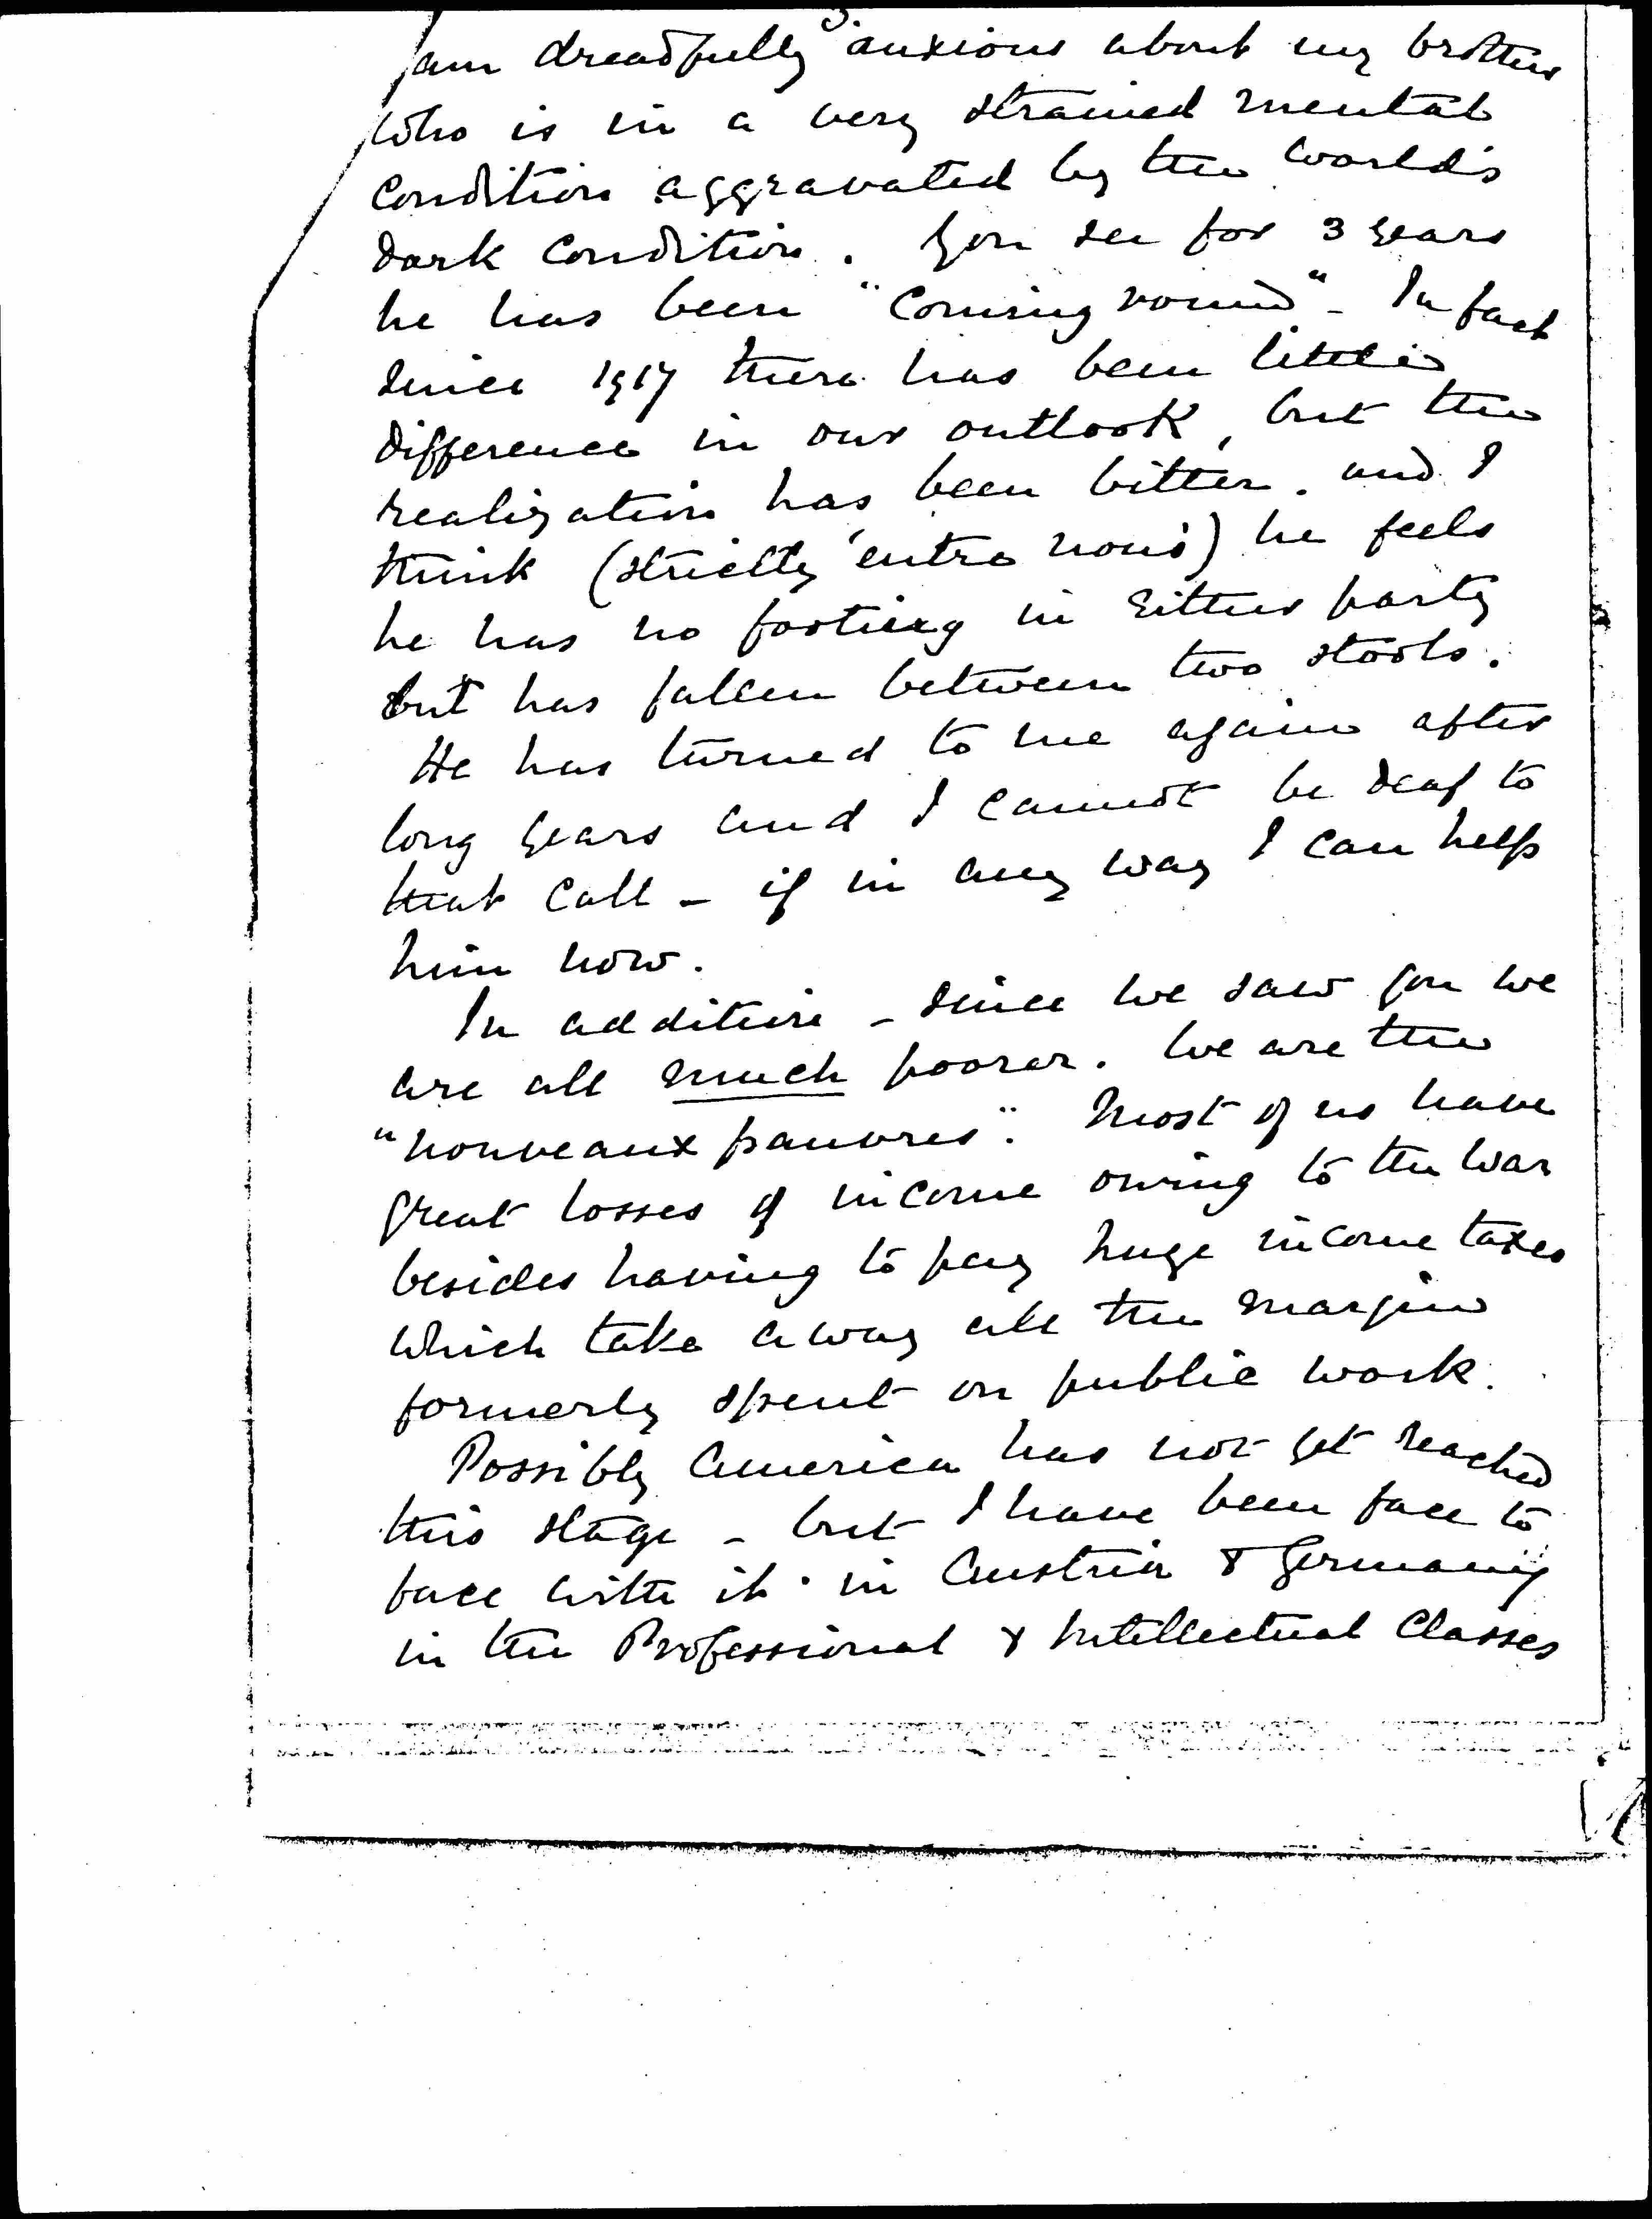 3.
am dreadfully anxious about my brother
who is in a very strained mental
condition aggravated by the world's
dark condition. You see for 3 years
he has been "coming round" - In fact
since 1917 there has been little
difference in our outlook, but the
realization has been bitter. and I
think (strictly 'entre nous') he feels
he has no footing in either party
but has fallen between two stools.
He has turned to me again after
long years and I cannot be deaf to
that call - if in any way I can help
him now.
In addition - since we saw you we
are all much poorer. We are the
"nouveaux pauvres". Most of us have
great losses of income owing to the war
besides having to pay huge income taxes
which take away all the margin
formerly spent on public work.
Possibly America has not yet reached
this stage - but I have been face to
face with it in Austria & Germany
in the Professional & Intellectual Classes